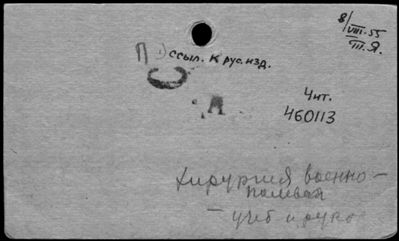 8/VIII-55
Т.Я.
П
ссыл. к рус. изд.
С
А
Чит.
460113
Хирургия военно-
полевая
- учеб и руко